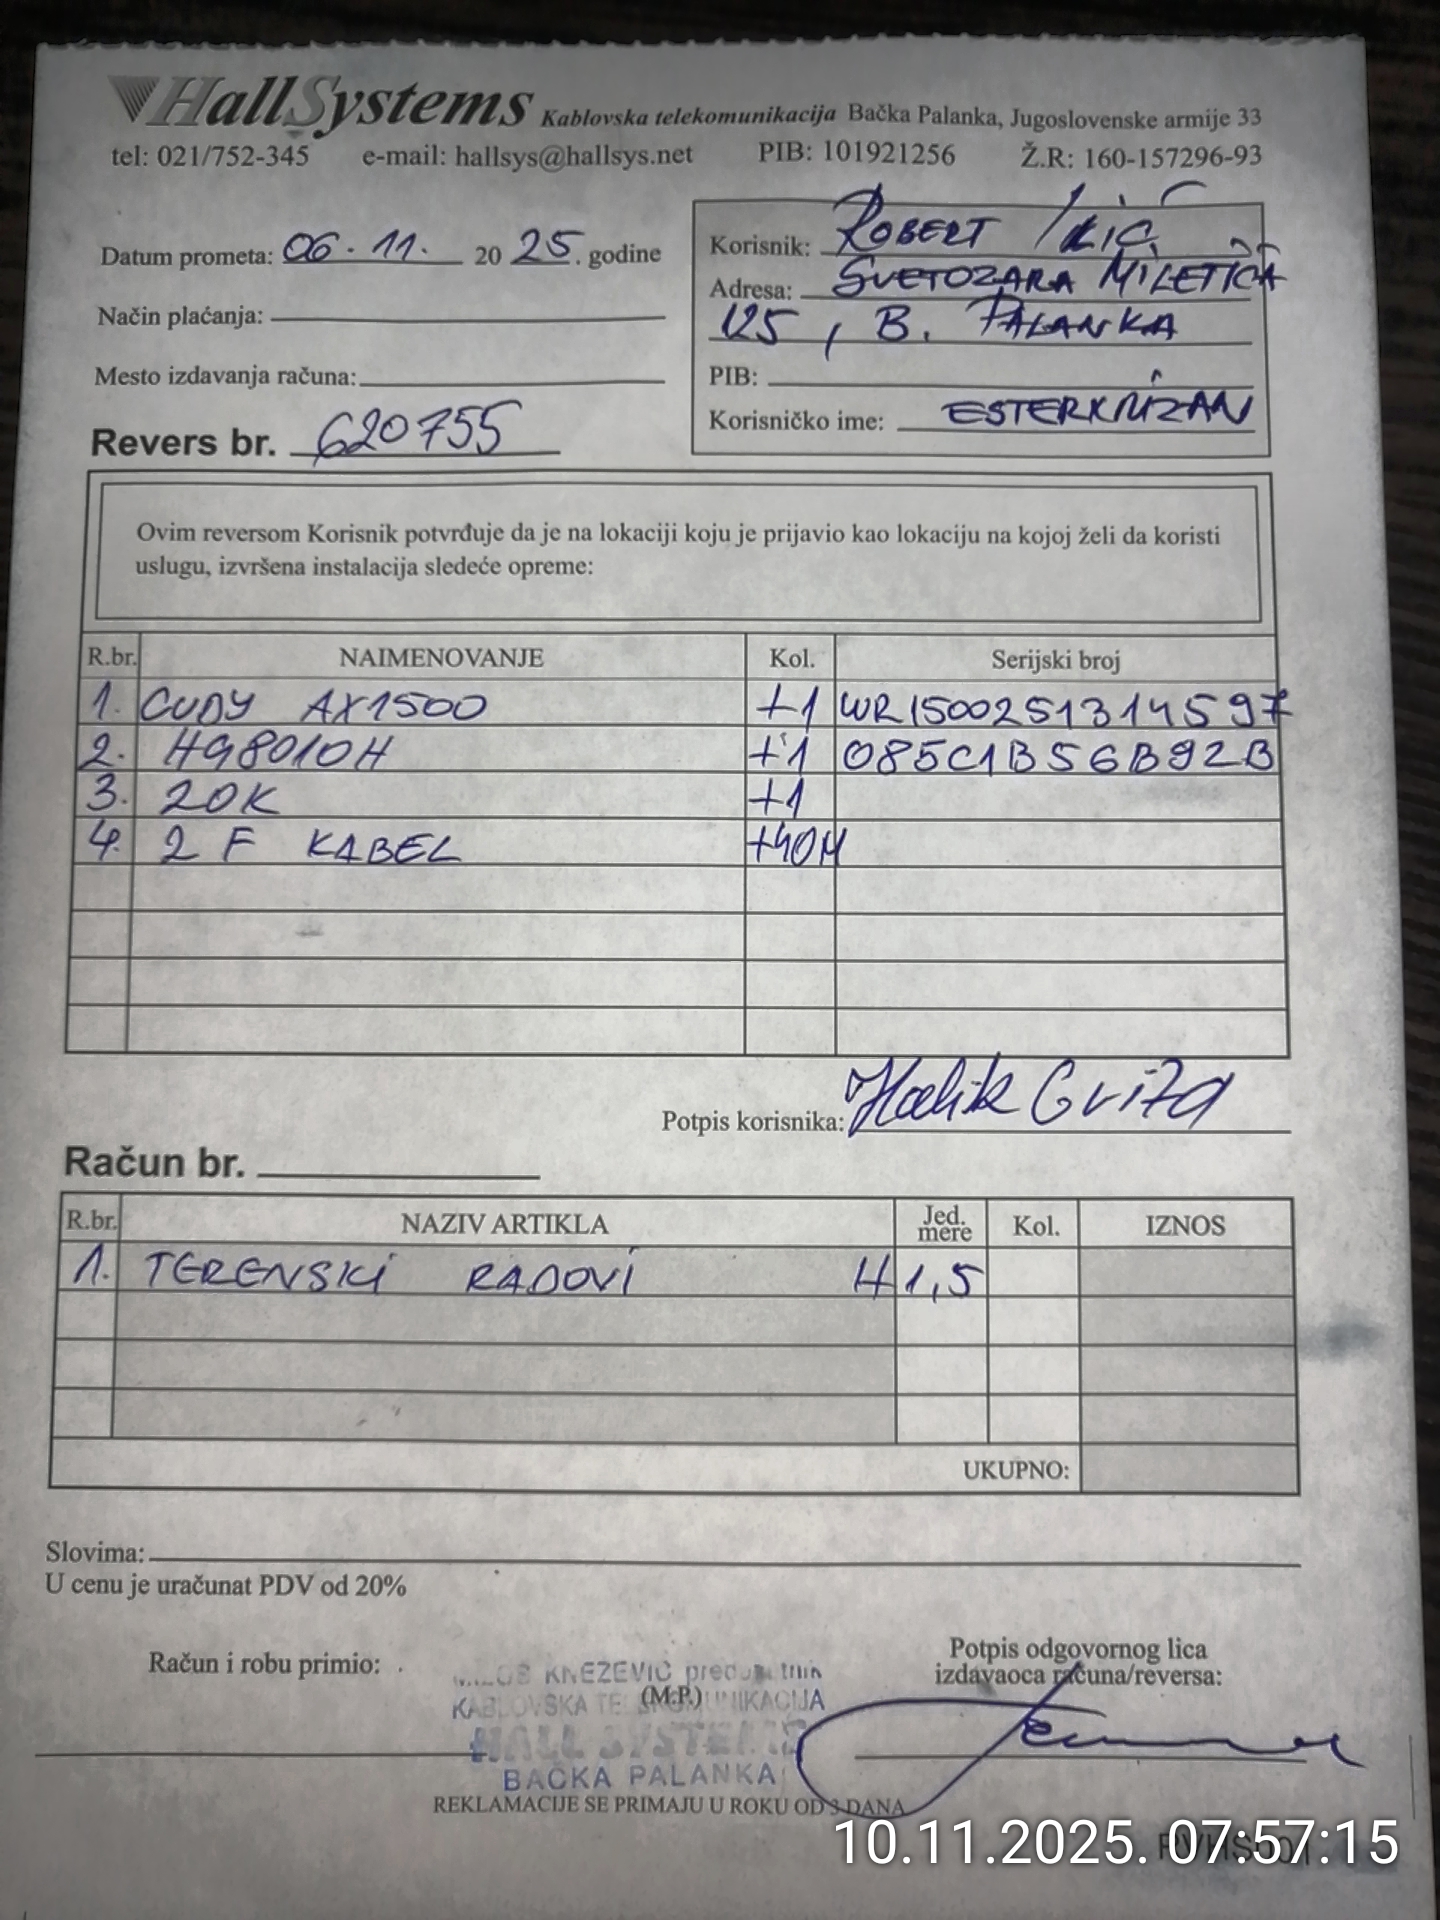 HallSystems Kablovska telekomunikacija Bačka Palanka, Jugoslovenske armije 33
tel: 021/752-345 e-mail: hallsys@hallsys.net PIB: 101921256 Ž.R: 160-157296-93
Datum prometa: 06.11. 2025. godine
Način plaćanja:
Mesto izdavanja računa:
Revers br. 620755
Korisnik: ROBERT
Adresa: SVETOZARA MILETIĆA
125, B. PALANKA
PIB:
Korisničko ime: ESTERKRIZAN
Ovim reversom Korisnik potvrđuje da je na lokaciji koju je prijavio kao lokaciju na kojoj želi da koristi
uslugu, izvršena instalacija sledeće opreme:
R.br. NAIMENOVANJE Kol. Serijski broj
1. CUDY AX1500 +1 WR1500251314597
2. HG8010H +1 085C1B56B92B
3. 20K +1
4. 2 F KABEL +40M
Potpis korisnika: Halik
Račun br.
R.br. NAZIV ARTIKLA Jed. mere Kol. IZNOS
1. TERENSKI RADOVI H 1,5
UKUPNO:
Slovima:
U cenu je uračunat PDV od 20%
Račun i robu primio:
(M.P.)
Potpis odgovornog lica
izdavaoca računa/reversa:
KNEZEVIĆ
KABLOVSKA TELEKOMUNIKACIJA
HALL SYSTEMS
BAČKA PALANKA
REKLAMACIJE SE PRIMAJU U ROKU OD 3 DANA
10.11.2025. 07:57:15